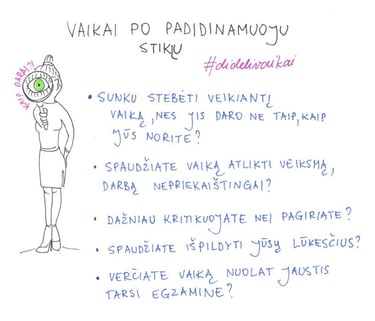 VAIKAI PO PADIDINAMUOJU
STIKLU
#didelivaikai
KAIP DABAI?!
• SUNKU STEBĖTI VEIKIANTĮ
VAIKĄ, NES JIS DARO NE TAIP, KAIP
JŪS NORITE?
• SPAUDŽIATE VAIKĄ ATLIKTI VEIKSMĄ,
DARBĄ NEPRIEKAIŠTINGAI?
• DAŽNIAU KRITIKUOJATE NEI PAGIRIATE?
• SPAUDŽIATE IŠPILDYTI JŪSŲ LŪKESČIUS?
• VERČIATE VAIKĄ NUOLAT JAUSTIS
TARSI EGZAMINE?